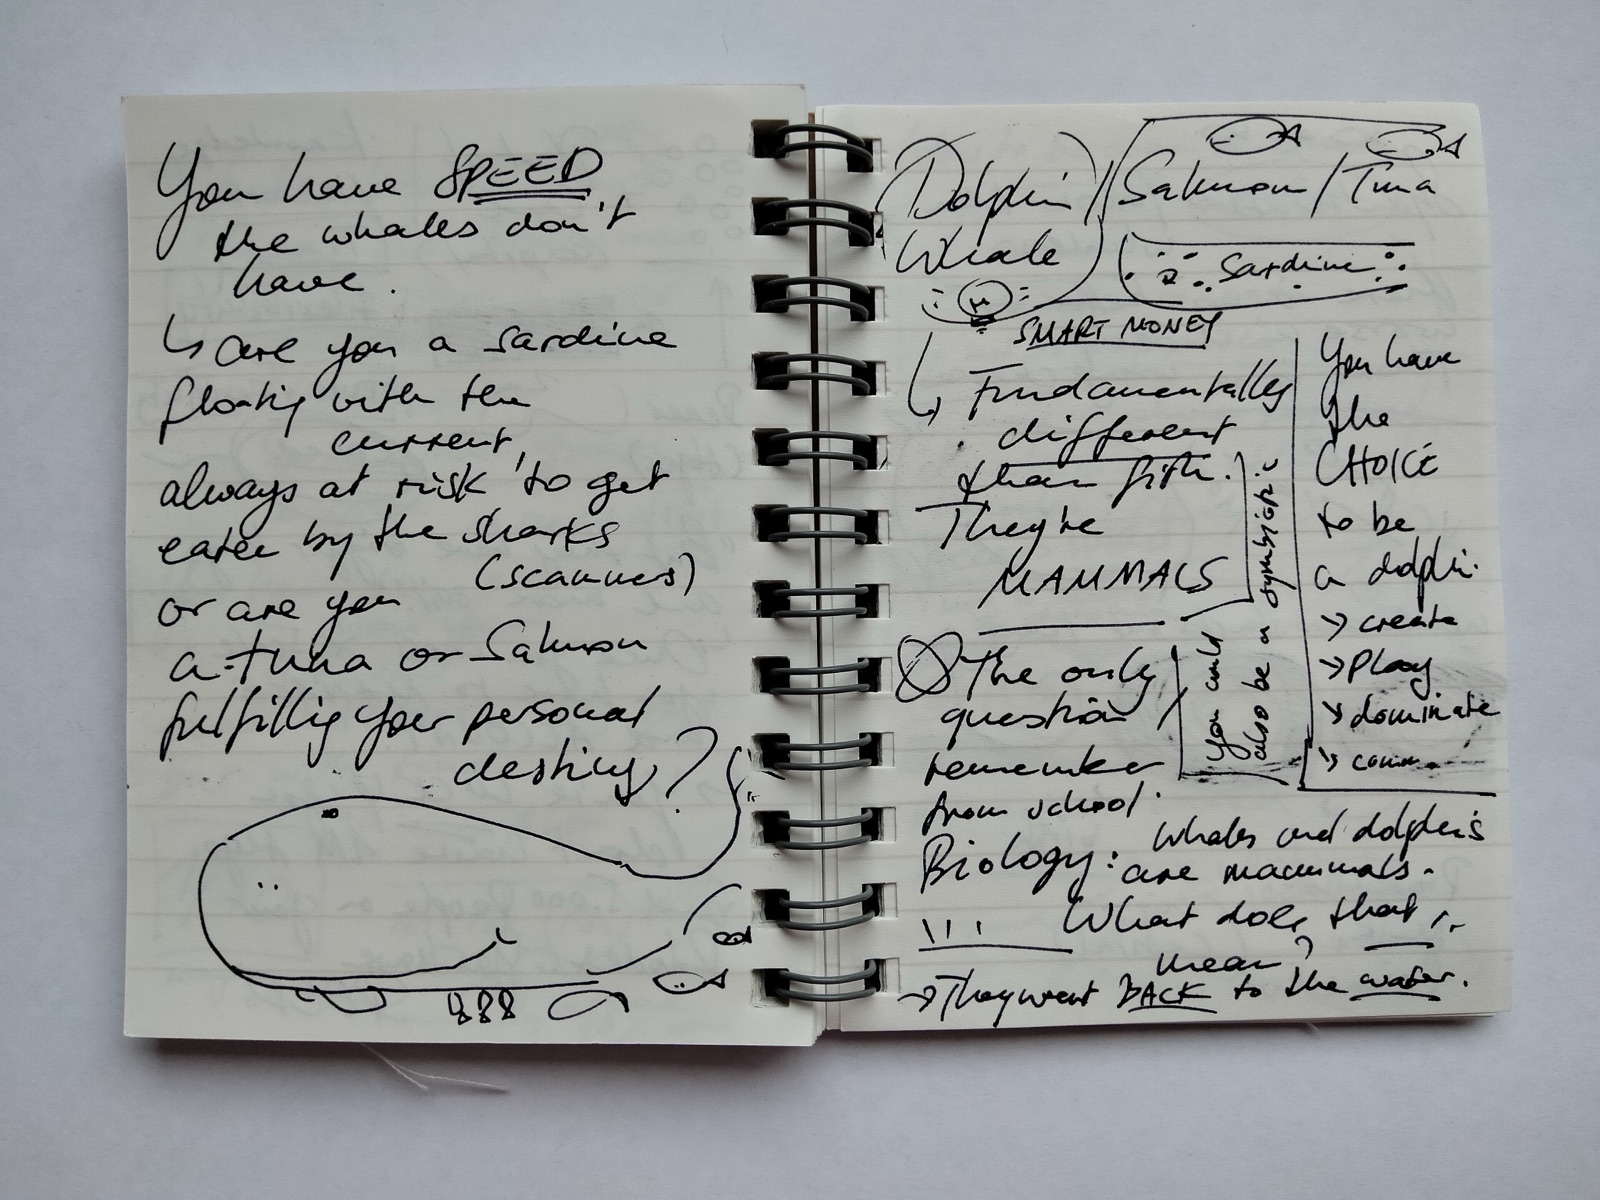 You have SPEED
the whales don't
have.
↳ are you a sardine
floatig with the
current,
always at risk to get
eaten by the sharks
(scammers)
or are you
a tuna or Salmon
fulfillig your personal
destiny?
888
Dolphin / Salmon / Tuna
Whale
Sardine
SMART MONEY
Fundamentally
different
than fish.
They're
MAMMALS
you could
also be a symbiotic
The only
question
remember
from school.
Biology: Whales and dolphins
are mammals.
What does that
mean?
→ They went BACK to the water.
You have
the
CHOICE
to be
a dolphin.
→ create
→ play
→ dominate
→ comm.